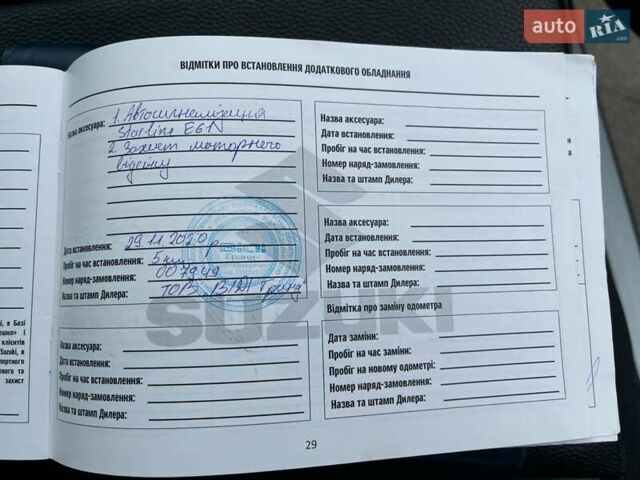 auto RIA.com
ВІДМІТКИ ПРО ВСТАНОВЛЕННЯ ДОДАТКОВОГО ОБЛАДНАННЯ
Назва аксесуара: 1. Автосигналізація
Starline E61N
2. Захист моторного
відсіку
Дата встановлення: 29.11.2020р
Пробіг на час встановлення: 5 км
Номер наряд-замовлення: 007949
Назва та штамп Дилера: ТОВ Гранд
Назва аксесуара:
Дата встановлення:
Пробіг на час встановлення:
Номер наряд-замовлення:
Назва та штамп Дилера:
Назва аксесуара:
Дата встановлення:
Пробіг на час встановлення:
Номер наряд-замовлення:
Назва та штамп Дилера:
Назва аксесуара:
Дата встановлення:
Пробіг на час встановлення:
Номер наряд-замовлення:
Назва та штамп Дилера:
Відмітка про заміну одометра
Дата заміни:
Пробіг на час заміни:
Пробіг на новому одометрі:
Номер наряд-замовлення:
Назва та штамп Дилера:
SUZUKI
29
і, в Базі
клієнтів
Suzuki, в
ого та
захист
на